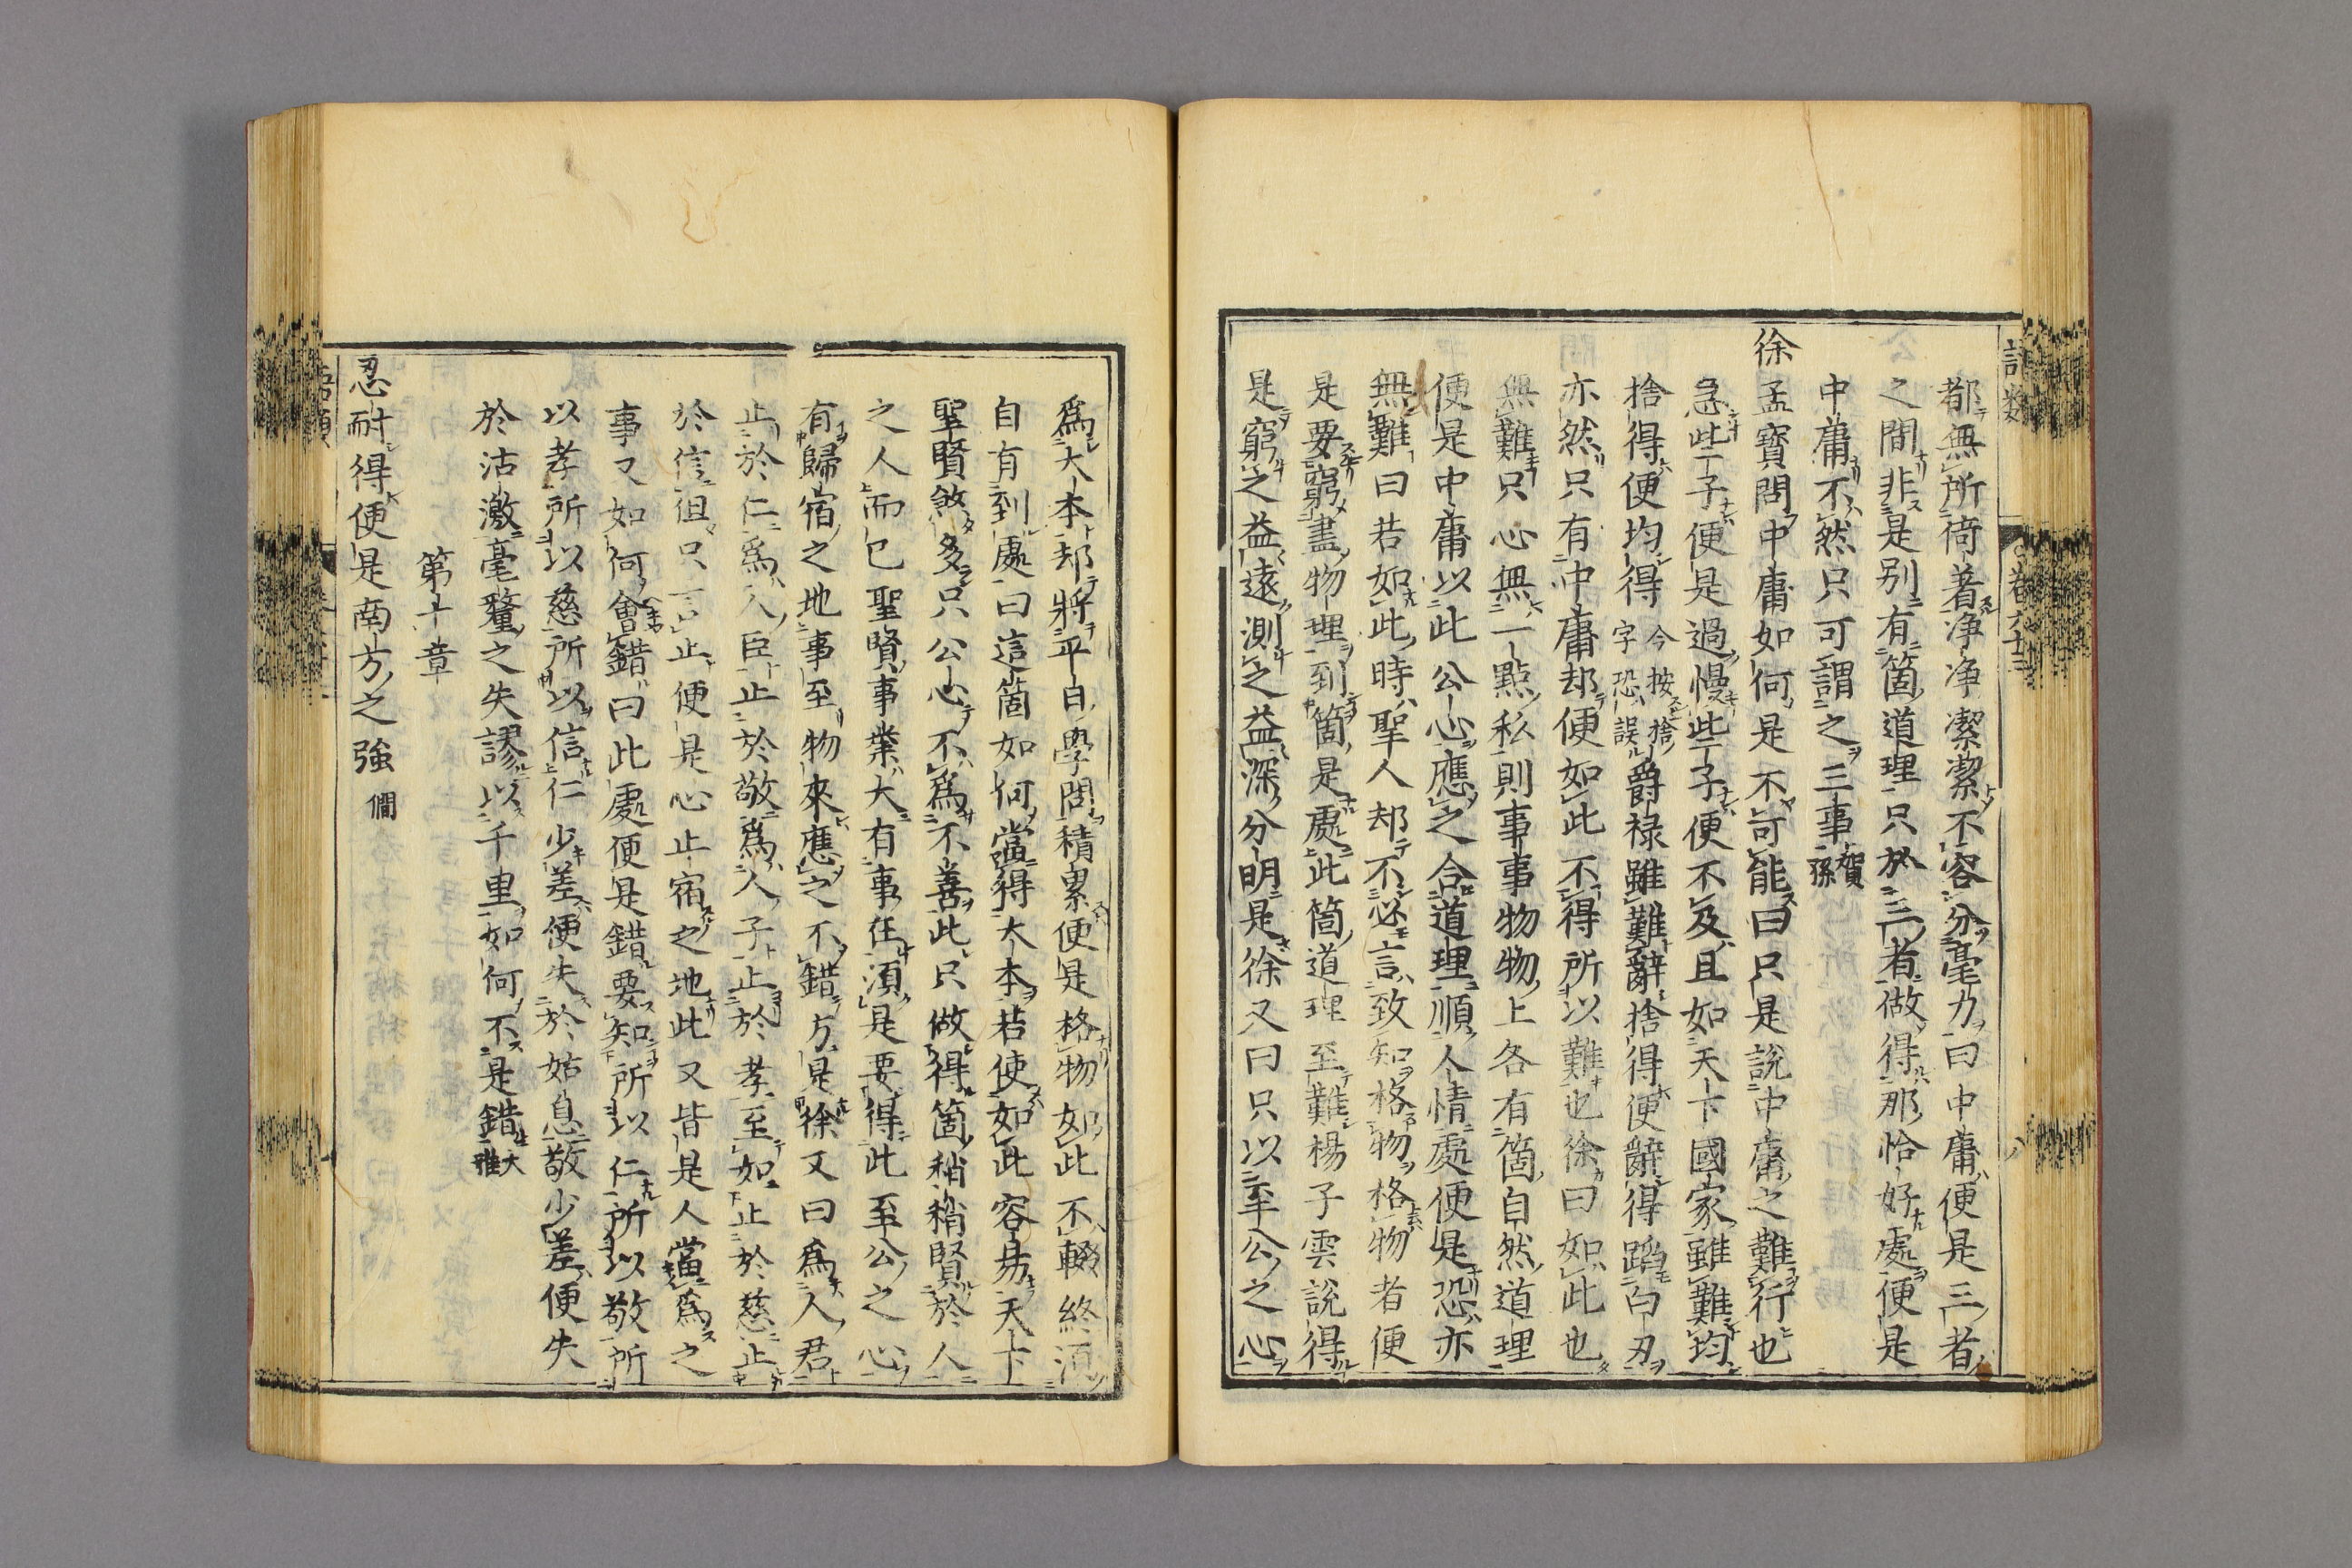 都無所倚著淨淨潔潔不容分毫力曰中庸便是三者
之間非是別有箇道理只於三者做得那恰好處便是
中庸不然只可謂之三事賀孫
徐孟寶問中庸如何是不可能曰只是說中庸之難行也
急些子便是過慢些子便不及且如天下國家雖難均
捨得便均得今按捨字恐誤爵祿雖難辭捨得便辭得蹈白刃
亦然只有中庸却便如此不得所以難也徐曰如此也
無難只心無一點私則事事物物上各有箇自然道理
便是中庸以此公心應之合道理順人情處便是恐亦
無難曰若如此時聖人却不必言致知格物格物者便
是要窮盡物理到箇是處此箇道理至難楊子雲說得
是窮之益遠測之益深分明是徐又曰只以至公之心
爲大本却將平日學問積累便是格物如此不輟終須
自有到處曰這箇如何當得大本若使如此容易天下
聖賢煞多只公心不爲不善此只做得箇稍稍賢於人
之人而已聖賢事業大有事在須是要得此至公之心
有歸宿之地事至物來應之不錯方是徐又曰爲人君
止於仁爲人臣止於敬爲人子止於孝至如止於慈止
於信但只言止便是心止宿之地此又皆是人當爲之
事又如何會錯曰此處便是錯要知所以仁所以敬所
以孝所以慈所以信仁少差便失於姑息敬少差便失
於沽激毫釐之失謬以千里如何不是錯大雅
第十章
忍耐得便是南方之強僩
語類
卷六十三
八